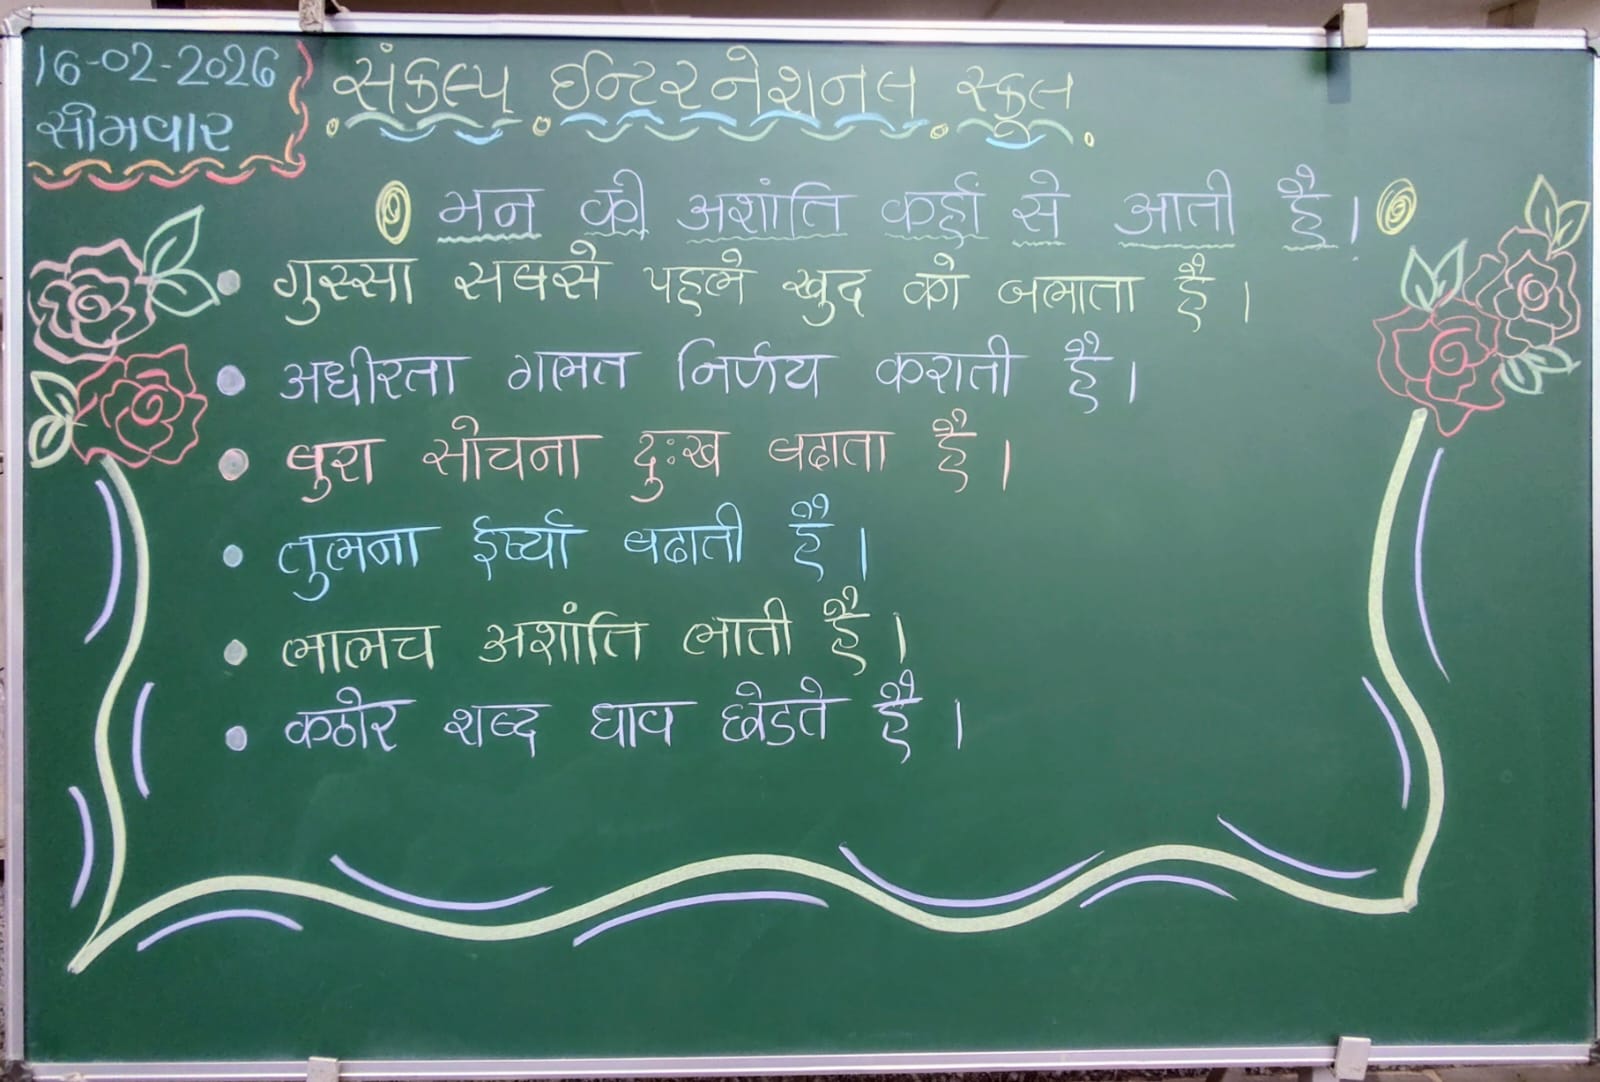 16-02-2026
सोमवार
संकल्प ईन्टरनेशनल स्कूल
मन की अशांति कहाँ से आती है।
गुस्सा सबसे पहले खुद को जलाता है।
अधीरता गलत निर्णय कराती है।
बुरा सोचना दुःख बढाता है।
तुलना ईर्ष्या बढाती है।
लालच अशांति लाती है।
कठोर शब्द घाव छोडते है।